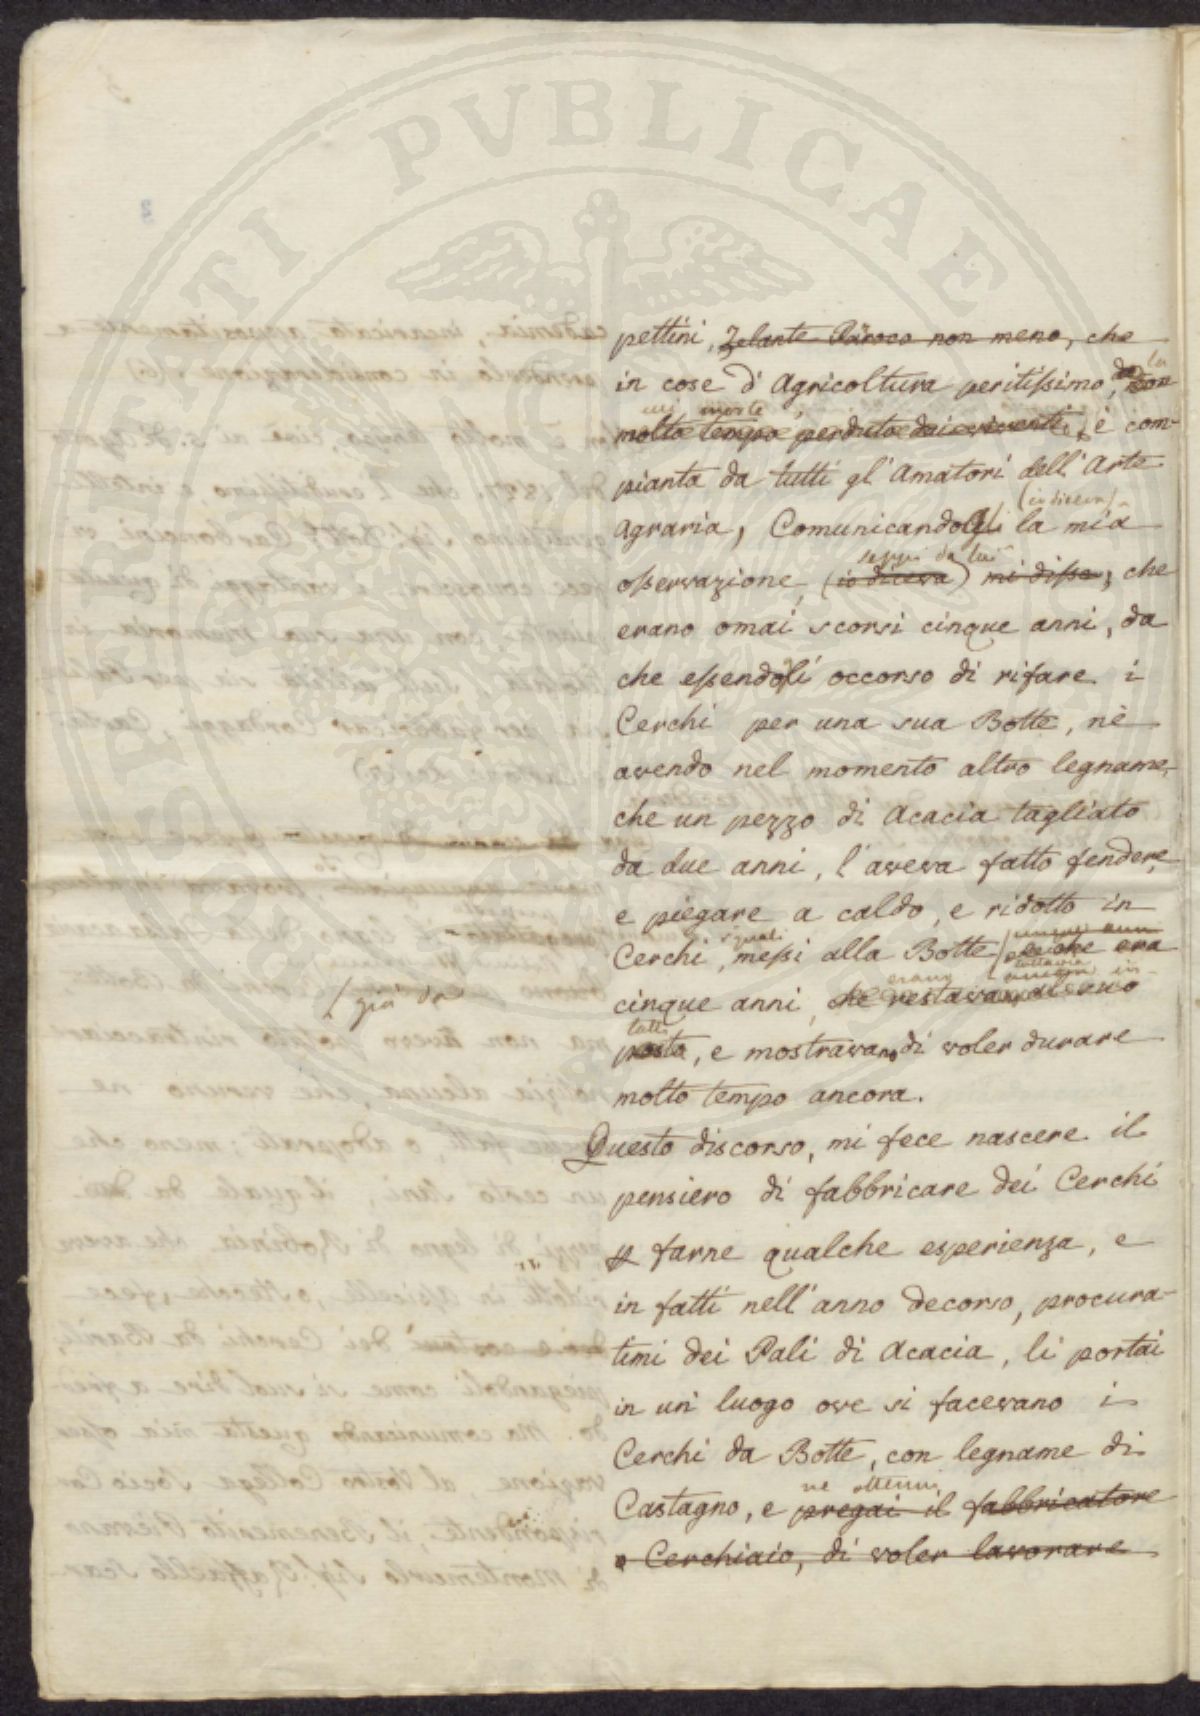 PROSPERITATI PUBLICAE
pettini, Zelante Paroco non meno, che
in cose d'Agricoltura peritissimo, la
cui morte
molto tempo perduto dai viventi, è com-
pianta da tutti gl'Amatori dell'Arte
(io diceva)
Agraria, Comunicandogli la mia
seppi da lui
osservazione, (io diceva) mi disse, che
erano omai scorsi cinque anni, da
che essendogli occorso di rifare i
Cerchi per una sua Botte, nè
avendo nel momento altro legname,
che un pezzo di Acacia tagliato
da due anni, l'aveva fatto fendere,
e piegare a caldo, e ridotto in
i quali
Cerchi, messi alla Botte, e che era
già da
erano tuttavia in
cinque anni, che restavano al suo
tatti
posto, e mostravano di voler durare
molto tempo ancora.
Questo discorso, mi fece nascere il
pensiero di fabbricare dei Cerchi
p farne qualche esperienza, e
in fatti nell'anno decorso, procura-
timi dei Pali di Acacia, li portai
in un luogo ove si facevano i
Cerchi da Botte, con legname di
ne ottenni
Castagno, e pregai il fabbricatore
o Cerchiaio, di voler lavorare